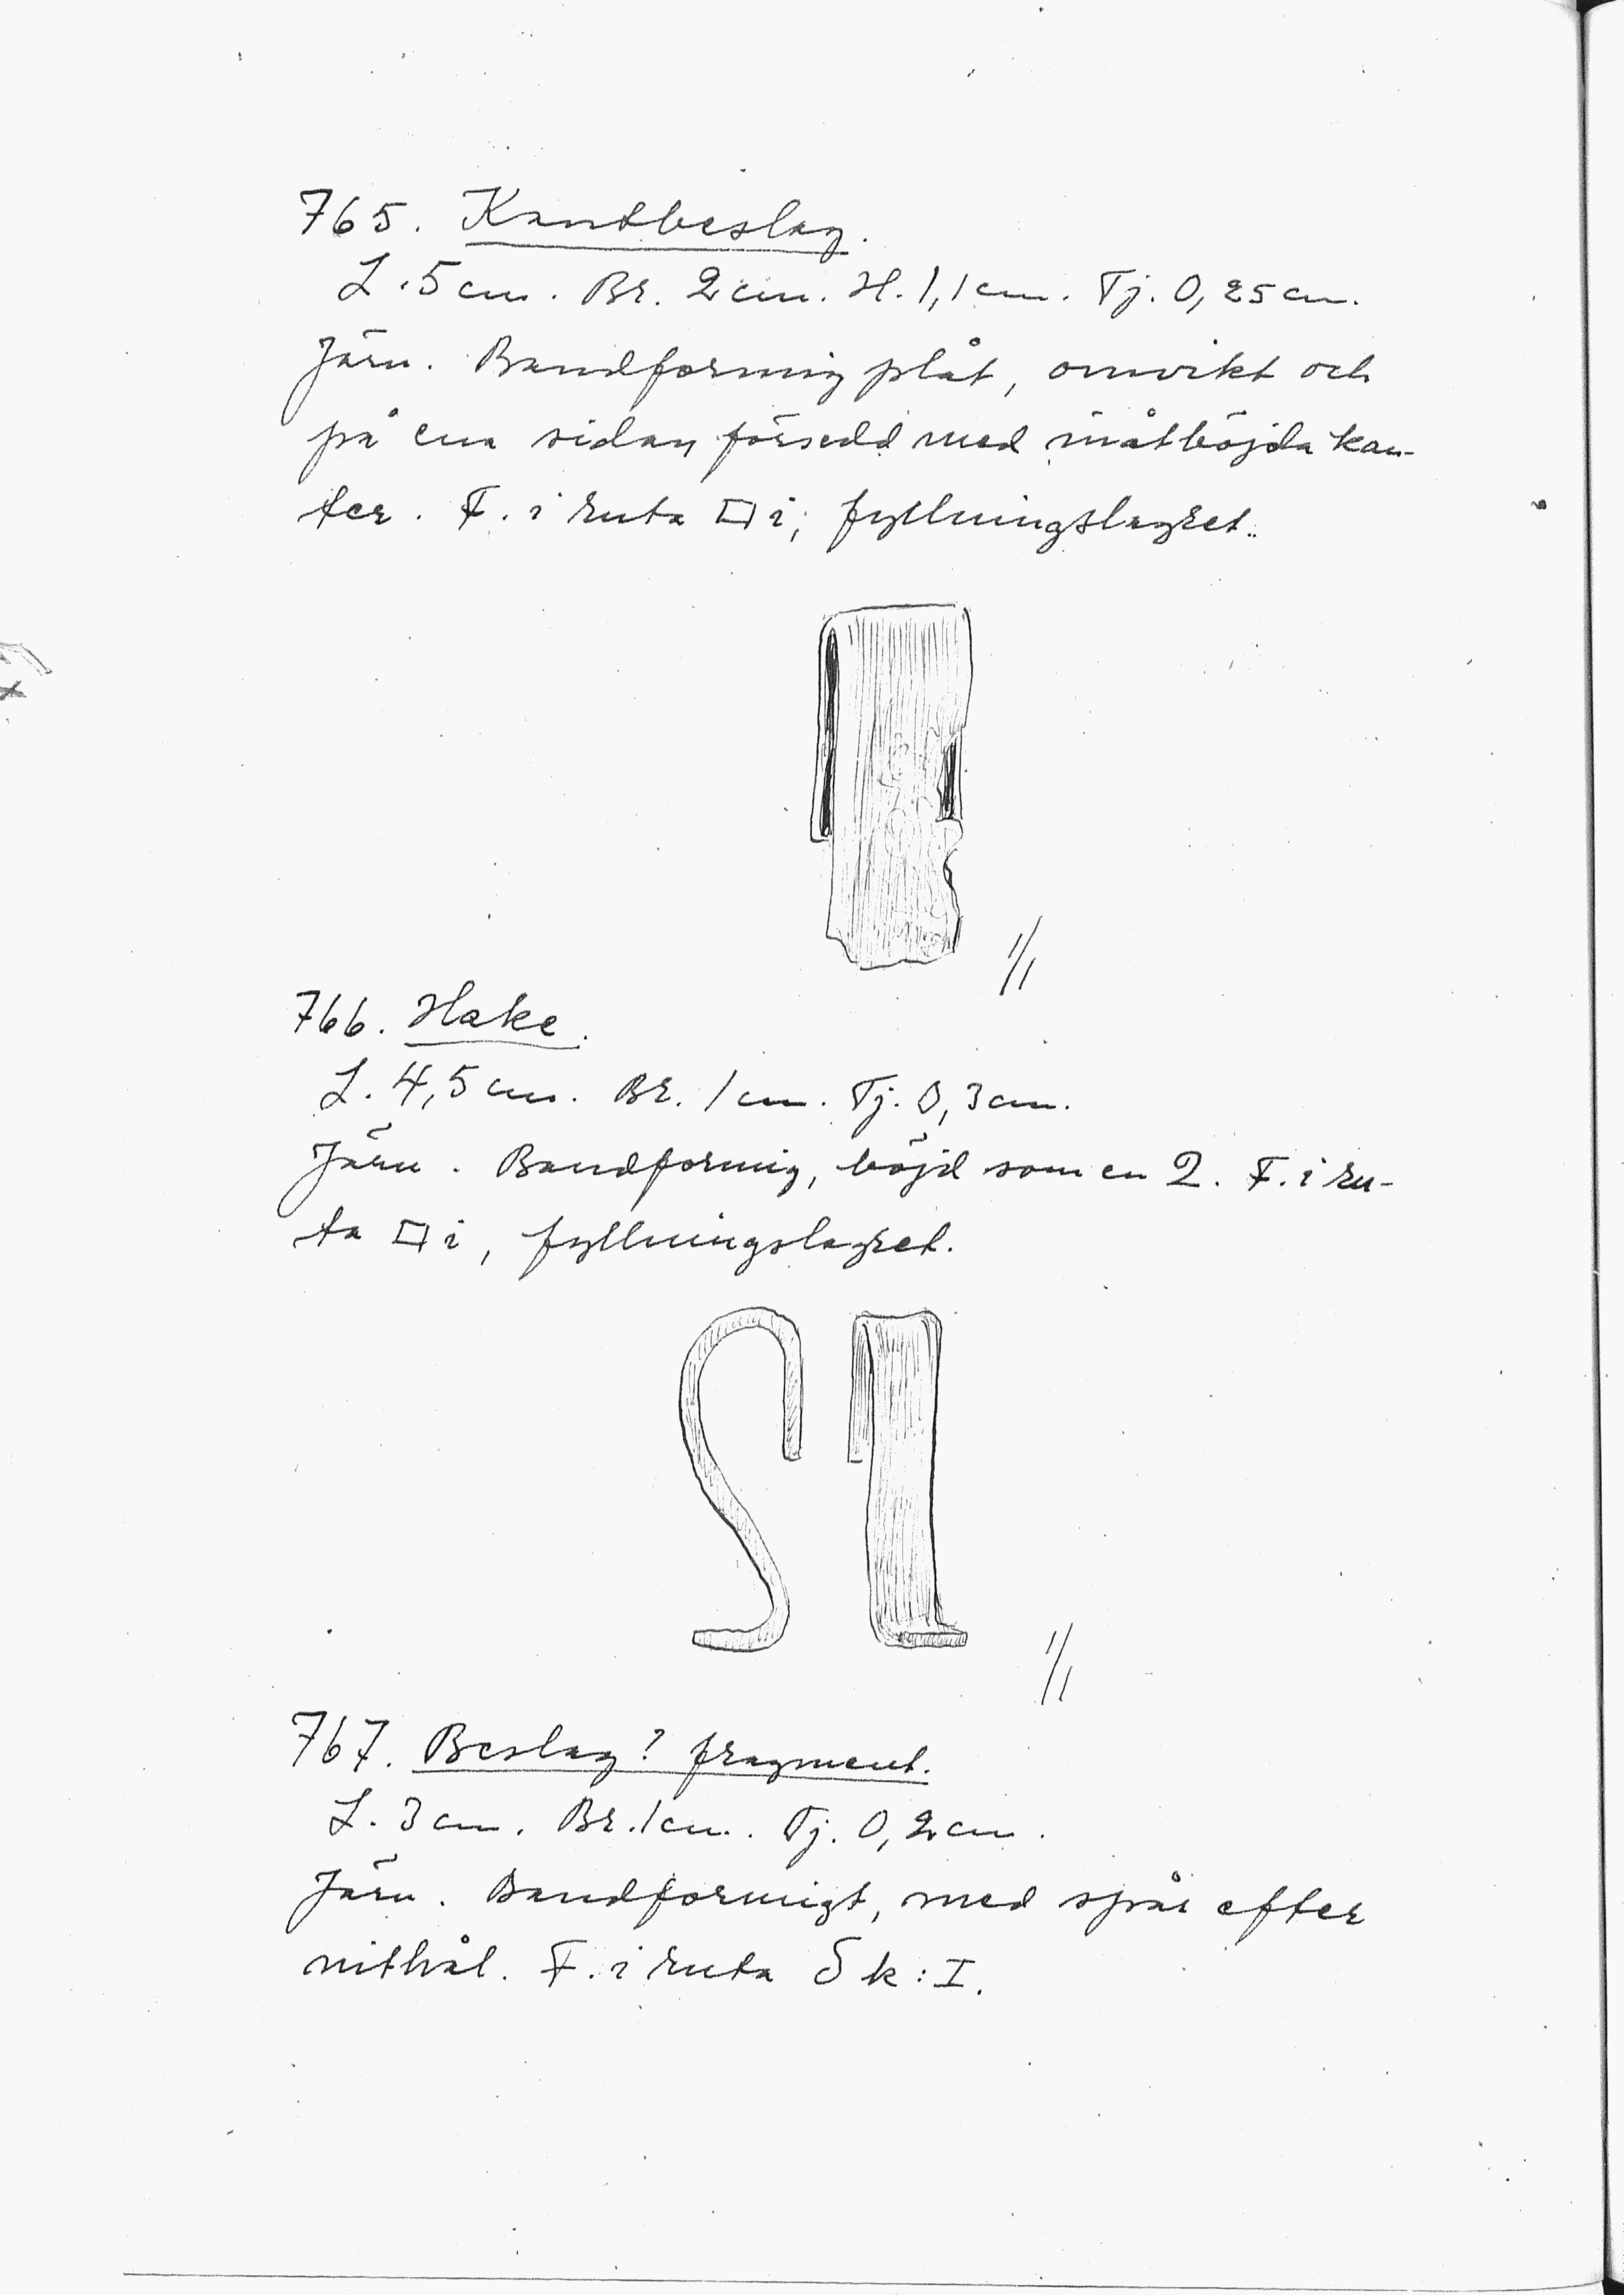 765. Kantbeslag.
L. 5 cm. Br. 2 cm. H. 1,1 cm. Tj. 0,25 cm.
Järn. Bandformig plåt, omvikt och
på ena sidan försedd med inåtböjda kan-
ter. F. i ruta □ i; fyllningslagret.
1/1
766. Hake.
L. 4,5 cm. Br. 1 cm. Tj. 0,3 cm.
Järn. Bandformig, böjd som en 2. F. i ru-
ta □ i, fyllningslagret.
1/1
767. Beslag? fragment.
L. 3 cm. Br. 1 cm. Tj. 0,2 cm.
Järn. Bandformigt, med spår efter
nithål. F. i ruta k: I.